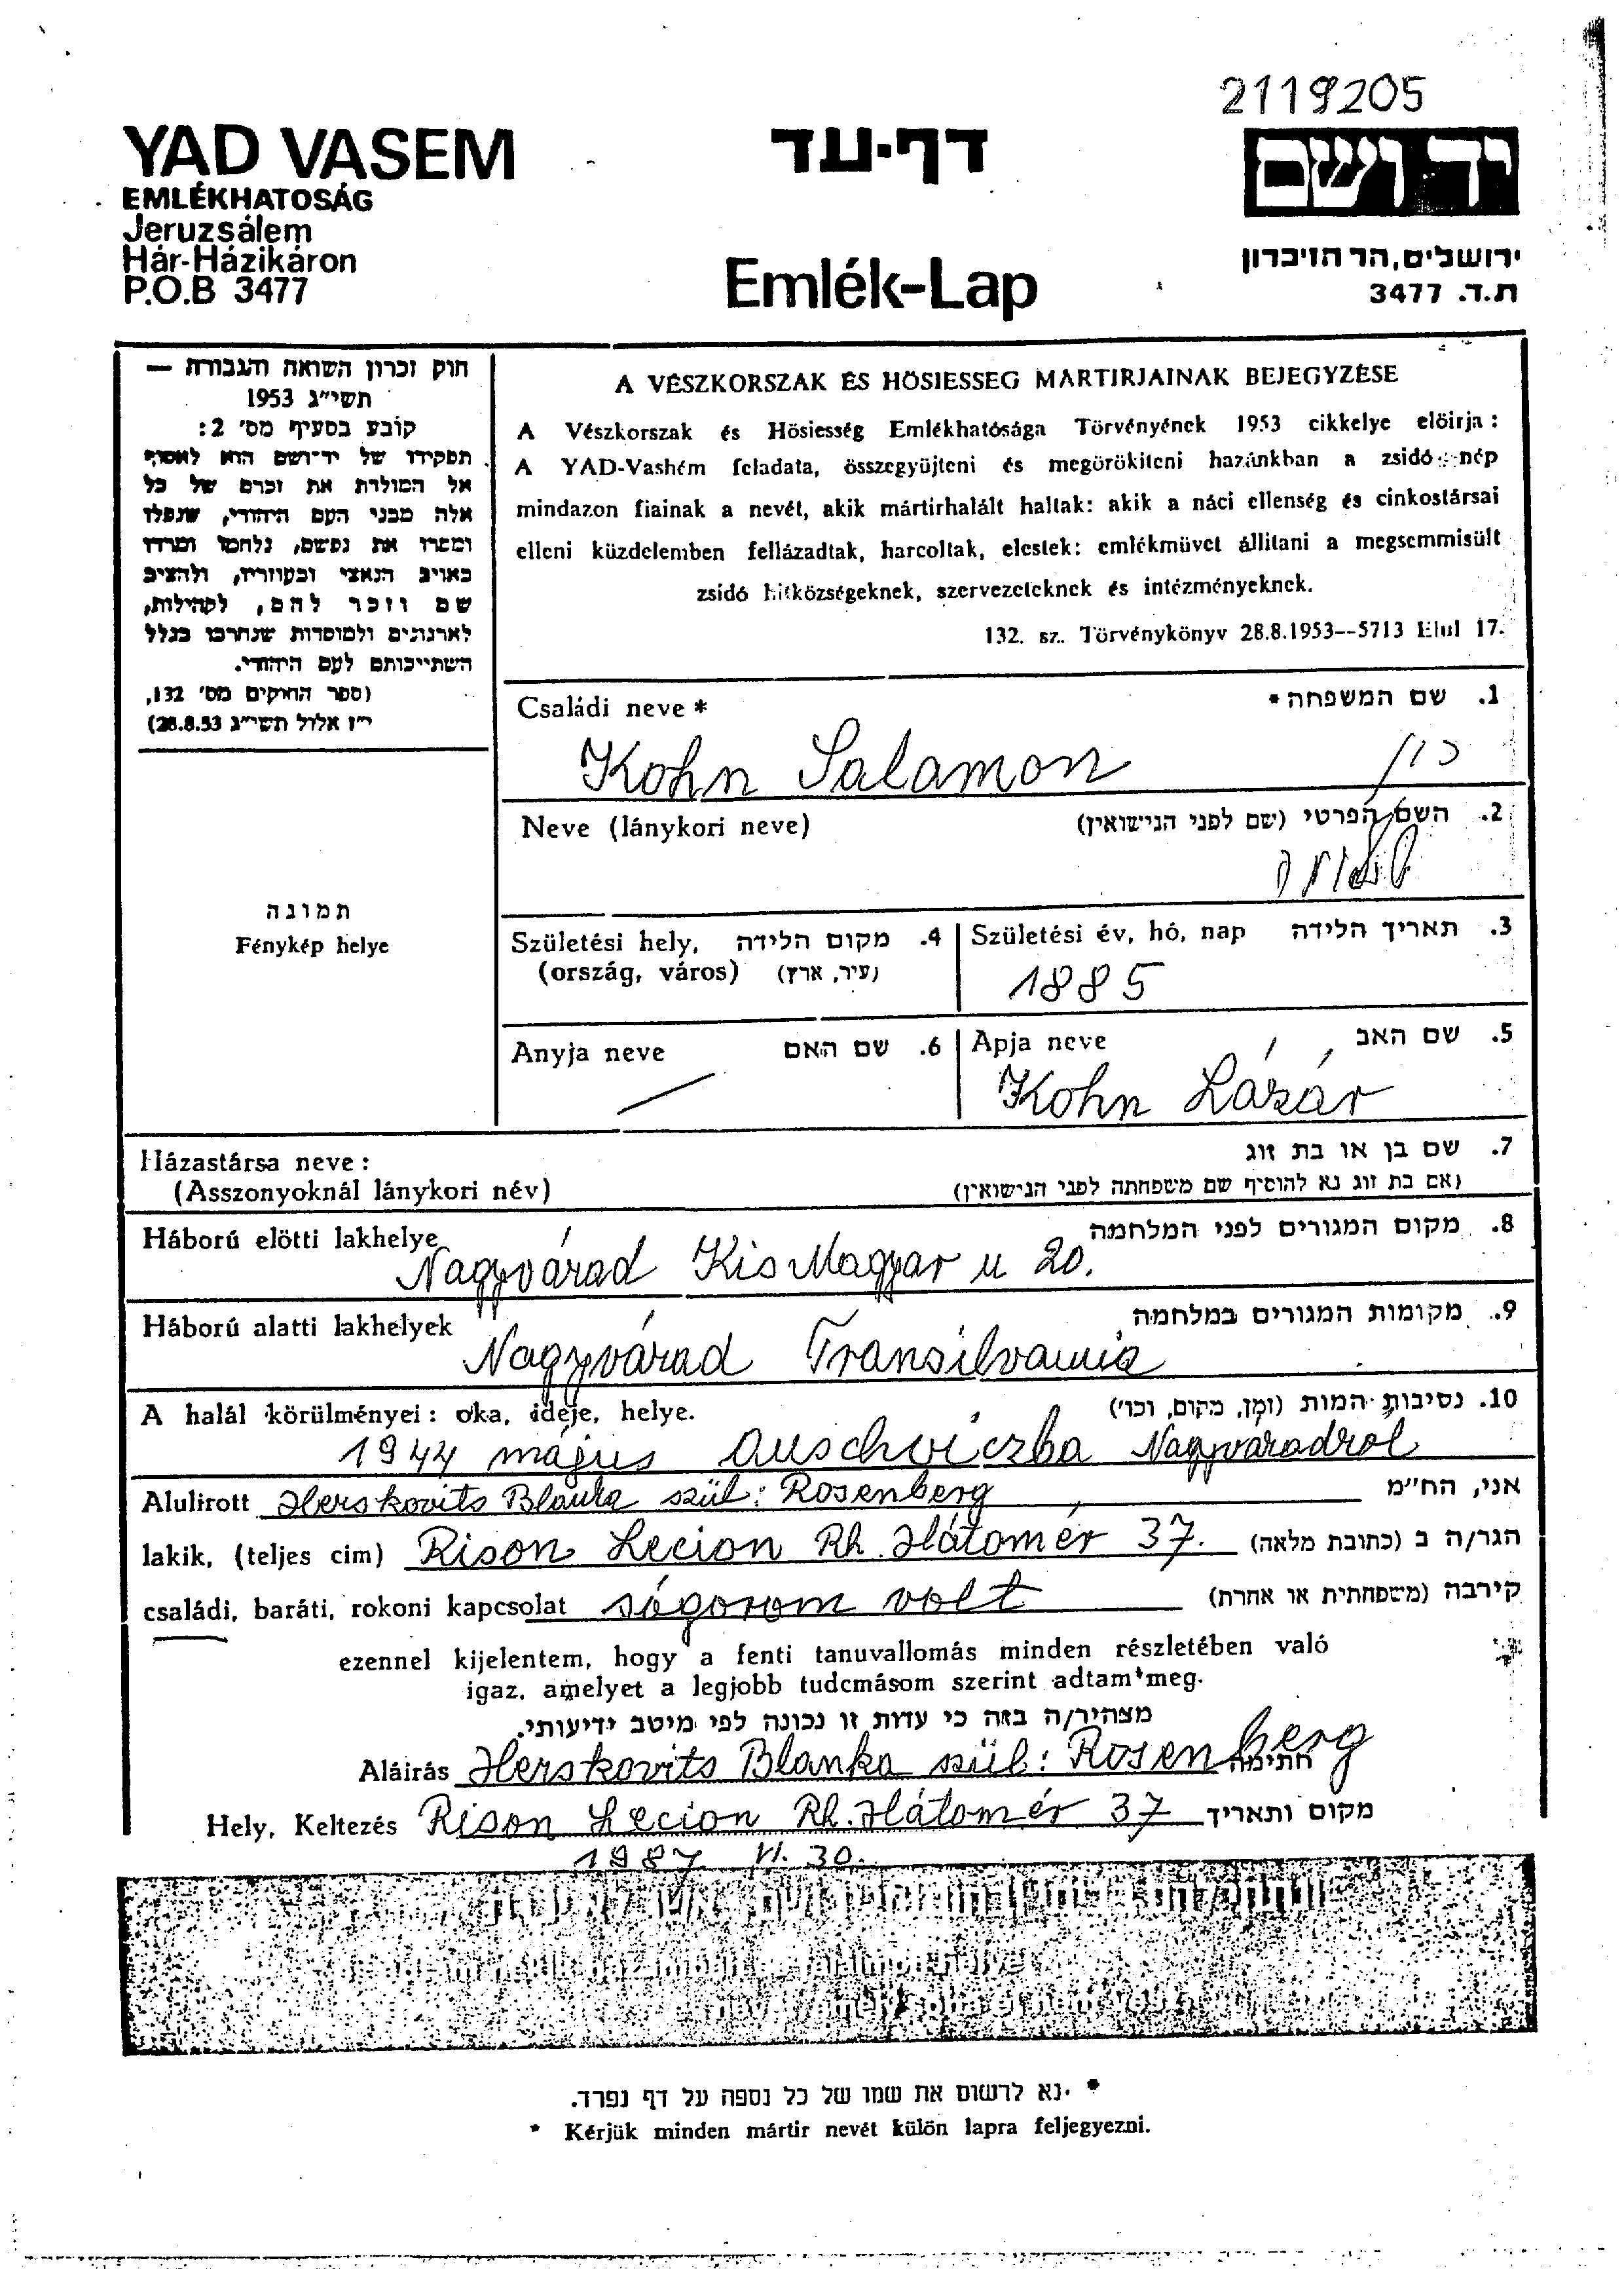 2119205
YAD VASEM
EMLÉKHATOSÁG
Jeruzsálem
Hár-Házikáron
P.O.B 3477
דף-עד
Emlék-Lap
יד ושם
ירושלים, הר הזיכרון
ת.ד. 3477
חוק זכרון השואה והגבורה —
תשי"ג 1953
קובע בסעיף מס' 2:
תפקידו של יד־ושם הוא לאסוף
אל המולדת את זכרם של כל
אלה מבני העם היהודי, שנפלו
ומסרו את נפשם, נלחמו ומרדו
באויב הנאצי ובעוזריו, ולהציב
שם וזכר להם, לקהילות,
לארגונים ולמוסדות שנחרבו בגלל
השתייכותם לעם היהודי.
(ספר החוקים מס' 132,
י"ז אלול תשי"ג 28.8.53)
תמונה
Fénykép helye
A VÉSZKORSZAK ÉS HÖSIESSEG MARTIRJAINAK BEJEGYZÉSE
A Vészkorszak és Hösiesség Emlékhatósága Törvényének 1953 cikkelye elöirja :
A YAD-Vashém feladata, összegyüjteni és megörökiteni hazánkban a zsidó nép
mindazon fiainak a nevét, akik mártirhalált haltak: akik a náci ellenség és cinkostársai
elleni küzdelemben fellázadtak, harcoltak, elestek: emlékmüvet állitani a megsemmisült
zsidó hitközségeknek, szervezeteknek és intézményeknek.
132. sz. Törvénykönyv 28.8.1953--5713 Elul 17.
Családi neve * 1. שם המשפחה *
Kohn Salamon כהן
Neve (lánykori neve) 2. השם הפרטי (שם לפני הנישואין)
Születési hely, 4. מקום הלידה
(ország, város) (עיר, ארץ)
Születési év, hó, nap 3. תאריך הלידה
1885
Anyja neve 6. שם האם
Apja neve 5. שם האב
Kohn Lázár
Házastársa neve : 7. שם בן או בת זוג
(Asszonyoknál lánykori név) (אם בת זוג נא להוסיף שם משפחתה לפני הנישואין)
Háború elötti lakhelye 8. מקום המגורים לפני המלחמה
Nagyvárad Kis Magyar u 20.
Háború alatti lakhelyek 9. מקומות המגורים במלחמה
Nagyvárad Transilvania
A halál körülményei : oka, ideje, helye. 10. נסיבות המות (זמן, מקום, וכו')
1944 május Auschviczba Nagyváradról
Alulirott Herskovits Blanka szül: Rosenberg אני, הח"מ
lakik, (teljes cim) Rison Lecion Rh. Hátomér 37. הגר/ה ב (כתובת מלאה)
családi, baráti, rokoni kapcsolat sógorom volt קירבה (משפחתית או אחרת)
ezennel kijelentem, hogy a fenti tanuvallomás minden részletében való
igaz, amelyet a legjobb tudcmásom szerint adtam meg.
מצהיר/ה בזה כי עדות זו נכונה לפי מיטב ידיעותי.
Aláirás Herskovits Blanka szül: Rosenberg חתימה
Hely, Keltezés Rison Lecion Rh. Hátomér 37 מקום ותאריך
1987 VI. 30.
* נא לרשום את שמו של כל נספה על דף נפרד.
* Kérjük minden mártir nevét külön lapra feljegyezni.